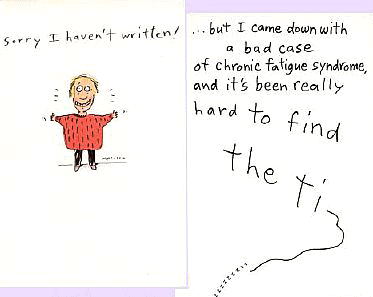 Sorry I haven't written!
...but I came down with
a bad case
of chronic fatigue syndrome,
and it's been really
hard to find
the ti
zzzzzzzz